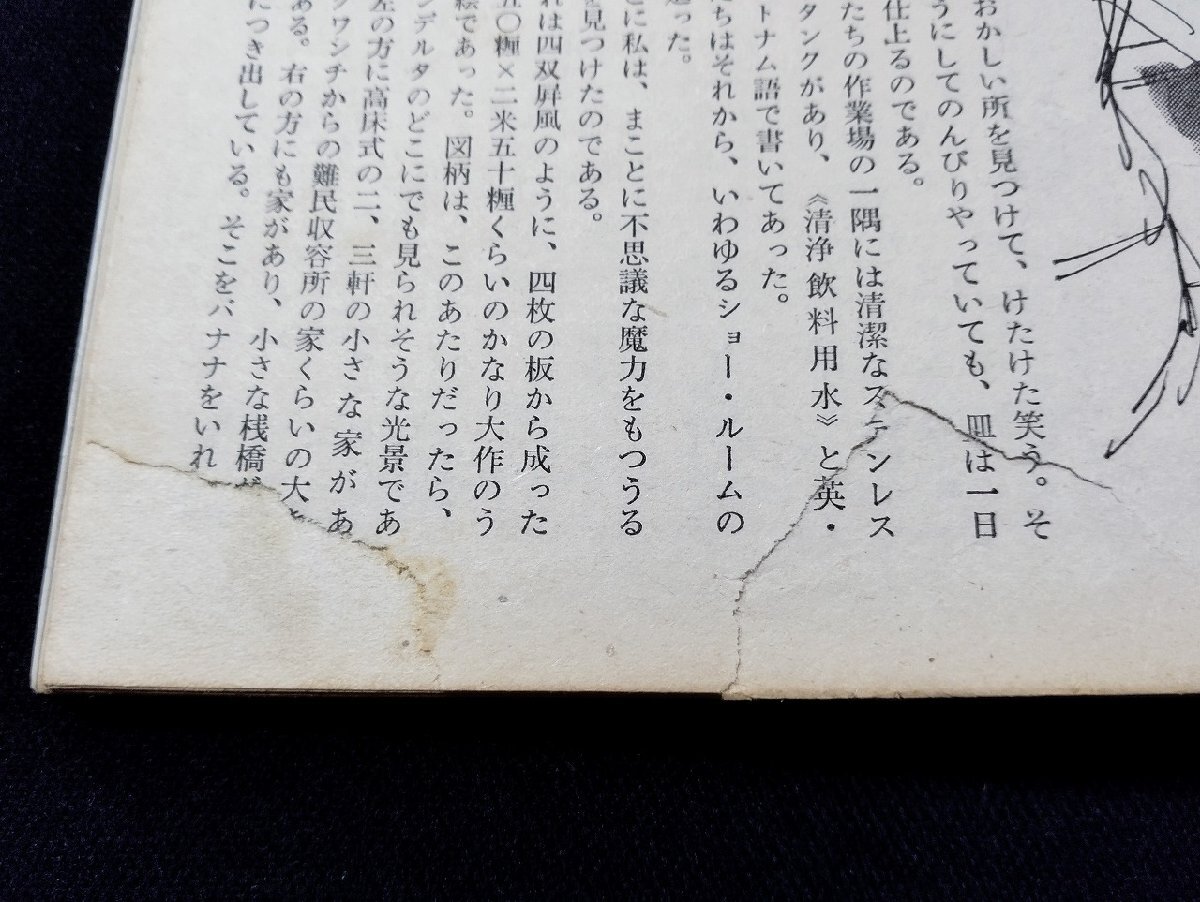 おかしい所を見つけて、けたけた笑う。そ
うにしてのんびりやっていても、皿は一日
仕上るのである。
たちの作業場の一隅には清潔なステンレス
タンクがあり、《清浄飲料用水》と英・
トナム語で書いてあった。
ちはそれから、いわゆるショー・ルームの
った。
に私は、まことに不思議な魔力をもつうる
見つけたのである。
れは四双屛風のように、四枚の板から成った
五〇糎×二米五十糎くらいのかなり大作のう
絵であった。図柄は、このあたりだったら、
ンデルタのどこにでも見られそうな光景であ
左の方に高床式の二、三軒の小さな家があ
ワシチからの難民収容所の家くらいの大
ある。右の方にも家があり、小さな桟橋が
につき出している。そこをバナナをいれ